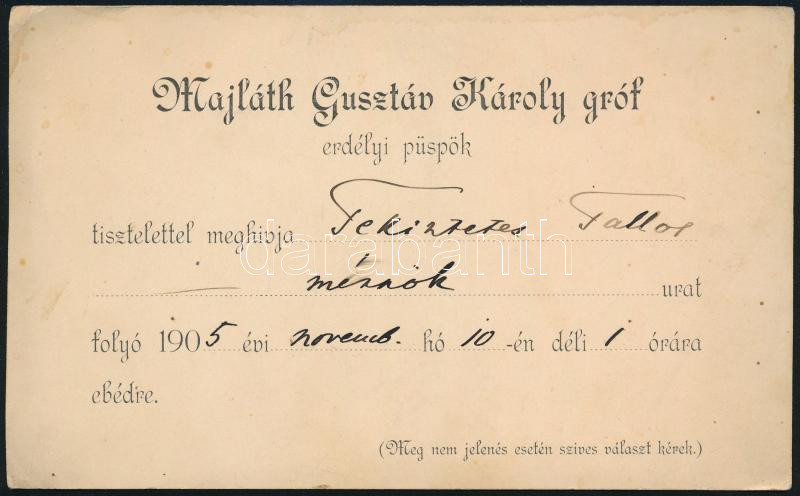 Majláth Gusztáv Károly gróf
erdélyi püspök
tisztelettel meghivja Tekintetes Tallos
mérnök urat
folyó 1905 évi novemb. hó 10-én déli 1 órára
ebédre.
(Meg nem jelenés esetén szives választ kérek.)
darabanth